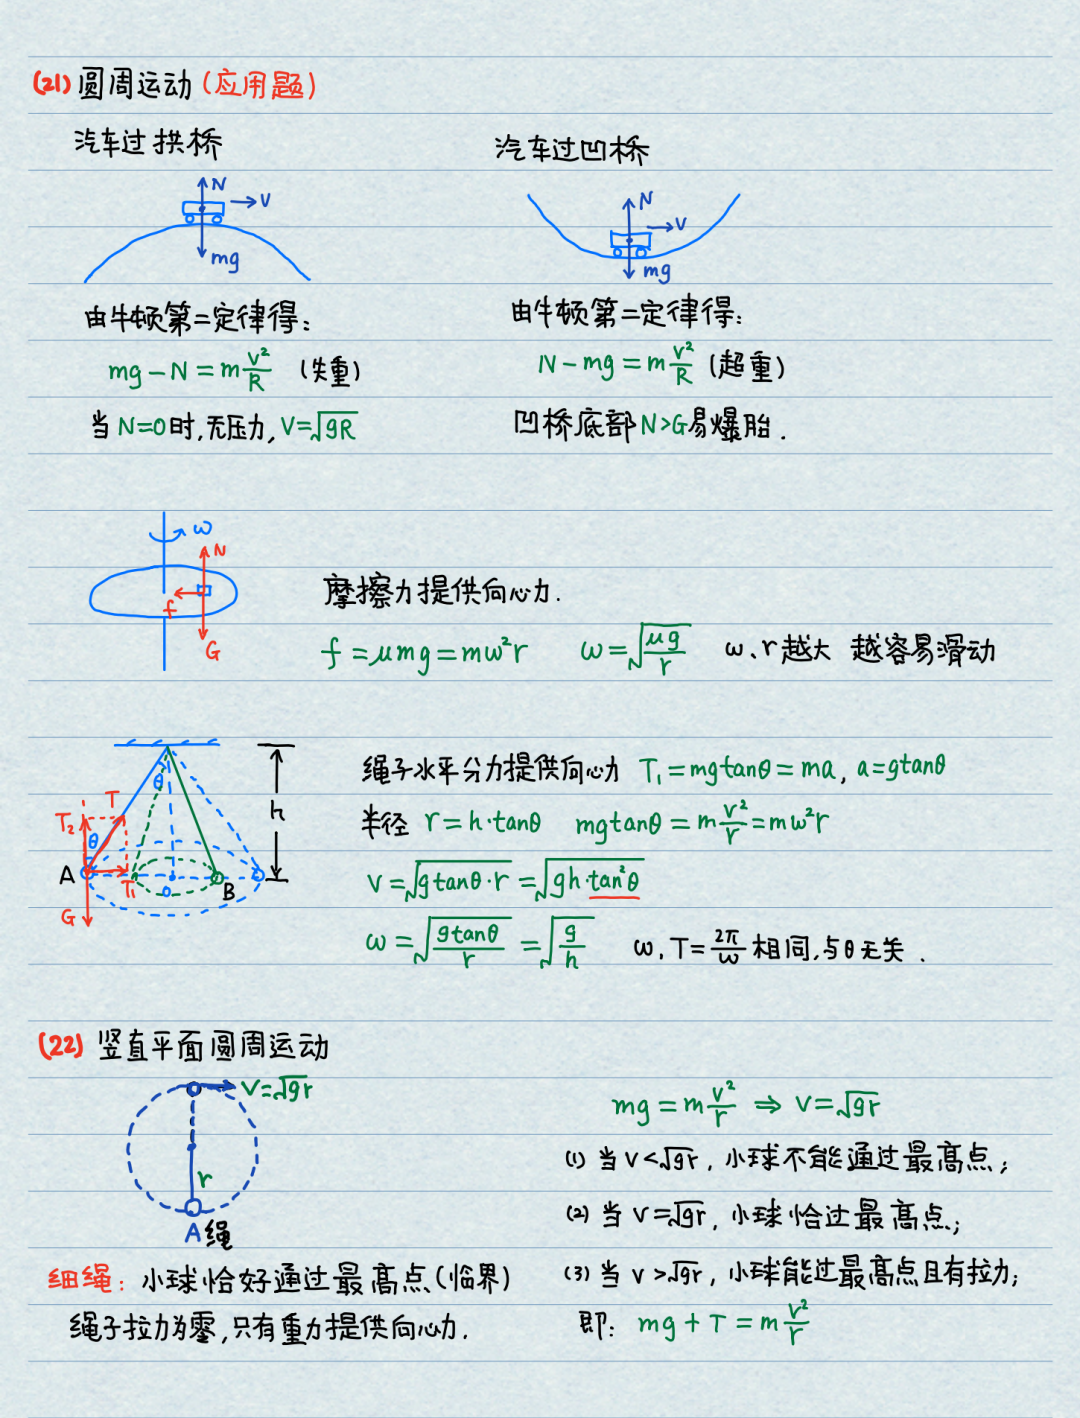 (21) 圆周运动(应用题)
汽车过拱桥
N
V
mg
由牛顿第二定律得:
mg－N＝m v²/R (失重)
当N=0时,无压力,V=√gR
汽车过凹桥
N
V
mg
由牛顿第二定律得:
N－mg＝m v²/R (超重)
凹桥底部N>G易爆胎.
ω
N
f
G
摩擦力提供向心力.
f＝μmg＝mω²r  ω＝√(μg/r)  ω、r越大 越容易滑动
θ
T
T₂
θ
A
T₁
G
O
B
h
绳子水平分力提供向心力 T₁＝mgtanθ＝ma, a＝gtanθ
半径 r＝h·tanθ  mgtanθ＝m v²/r＝mω²r
V＝√(gtanθ·r)＝√(gh·tan²θ)
ω＝√(gtanθ/r)＝√(g/h)  ω,T＝2π/ω 相同,与θ无关.
(22) 竖直平面圆周运动
V=√gr
r
A绳
细绳: 小球恰好通过最高点(临界)
绳子拉力为零,只有重力提供向心力.
mg＝m v²/r ⇒ V＝√gr
(1) 当V<√gr, 小球不能通过最高点;
(2) 当V＝√gr, 小球恰过最高点;
(3) 当V>√gr, 小球能过最高点且有拉力;
即: mg＋T＝m v²/r